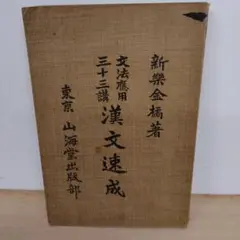 新樂金橘著
文法應用
三十三講
漢文速成
東京 山海堂出版部